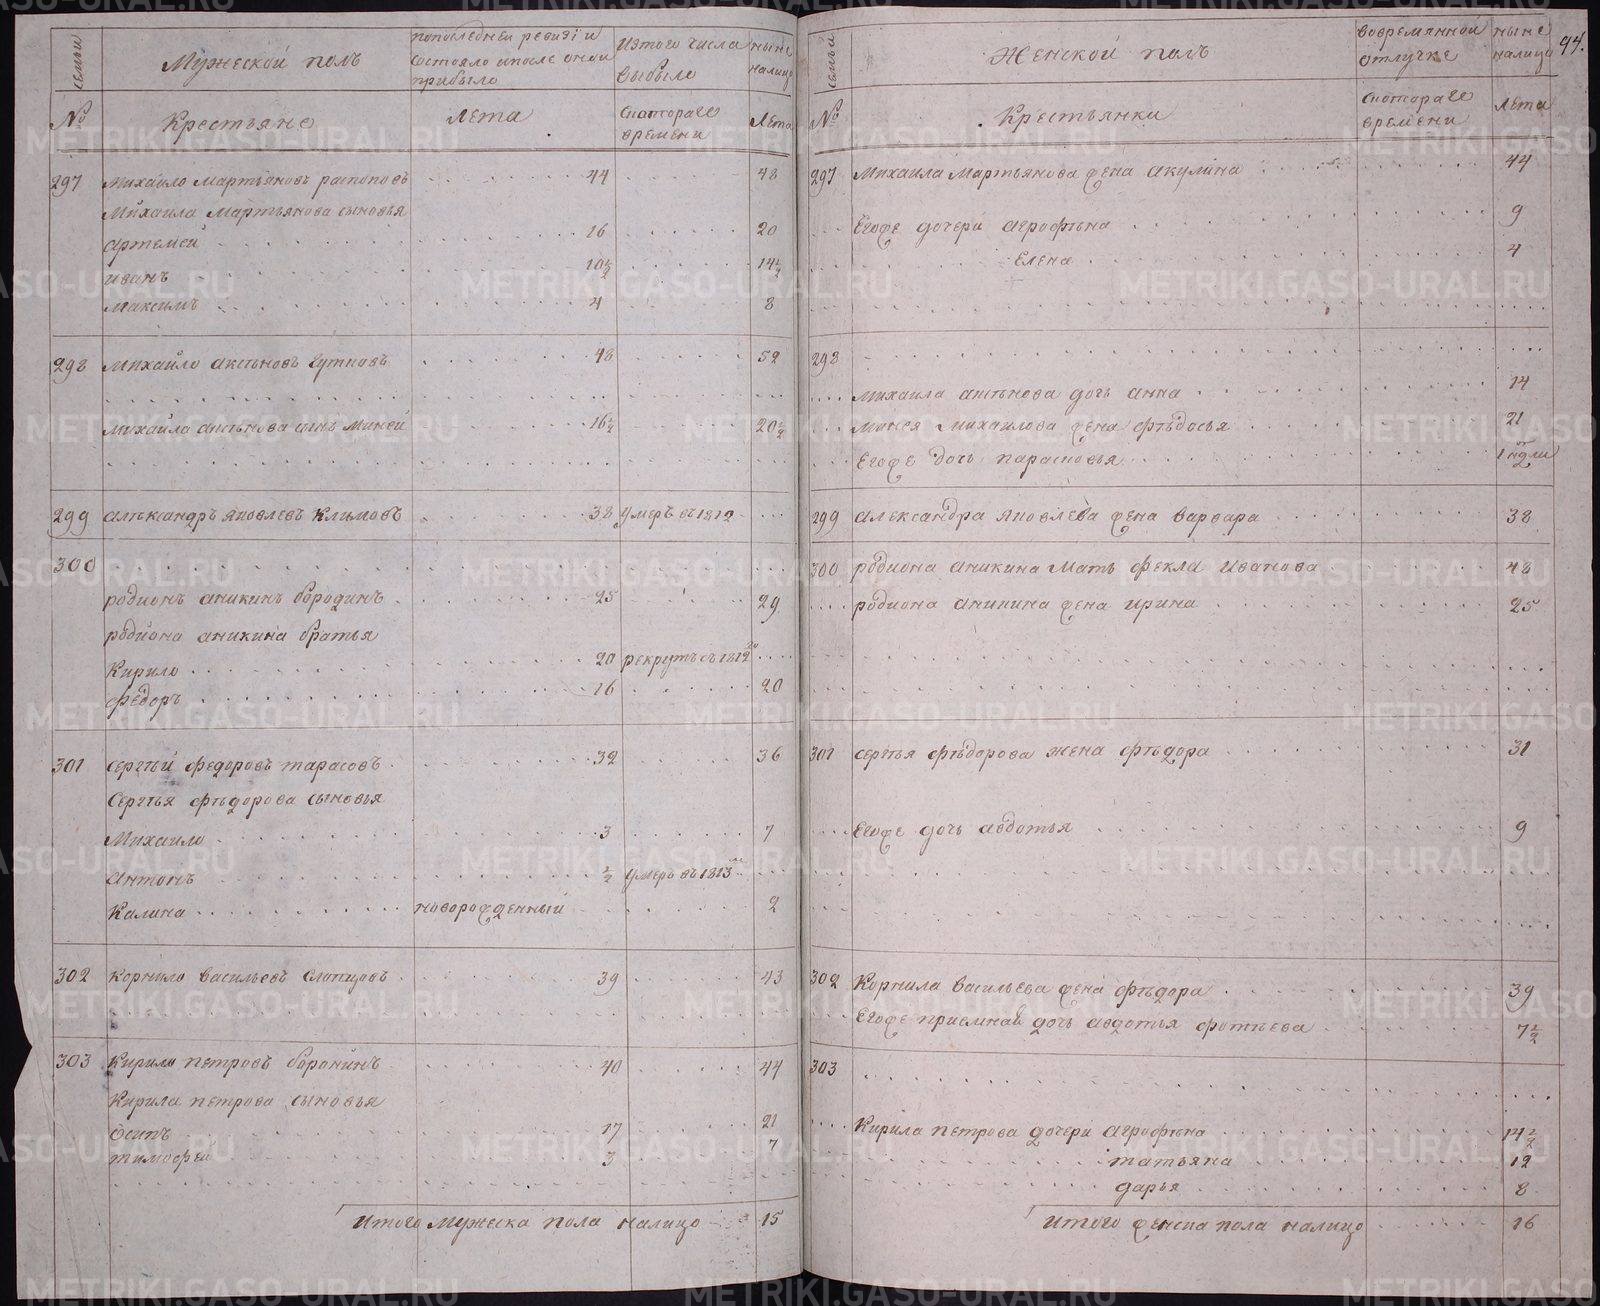 семьи
Мужеской полъ
попоследней ревизіи состояло ипосле оной прибыло
Изтого числа выбыло
ныне налицо
№
Крестьяне
Лета
скотораго времени
Лета
297 михайло мартьяновъ распоповъ 44 48
Михайла Мартьянова сыновья
артемей 16 20
иванъ 10½ 14½
максимъ 4 8
298 михайло аксѣновъ 48 52
михайла аксѣнова сынъ миней 16½ 20½
299 алѣксандръ яковлевъ Климовъ 38 умеръ въ 1812
300
родионъ аникинъ бородинъ 25 29
родиона аникина братья
Кирило 20 рекрутъ съ 1812го
федоръ 16 20
301 сергѣй федоровъ тарасовъ 32 36
Сергѣя фѣдорова сыновья
Михаило 3 7
антонъ ½ умеръ въ 1813м
Калина новорожденный 2
302 корнило васильевъ Слопцовъ 39 43
303 Кирило петровъ боронинъ 40 44
Кирила петрова сыновья
Осипъ 17 21
тимофей 3 7
Итого Мужеска пола налицо 15
94.
семьи
Женской полъ
вовремянной отлучке
ныне налицо
№
Крестьянки
скотораго времени
Лета
297 Михаила Мартьянова жена акулина 44
Егоже дочери агрофѣна 9
Елена 4
298
михаила аксѣнова дочь анна 14
Минея михаилова жена фѣдосья 21
Егоже дочь парасковья 1 ндли
299 Александра яковлева жена варвара 38
300 родиона аникина мать фекла Иванова 48
родиона аникина жена ирина 25
301 сергѣя фѣдорова жена фѣдора 31
Егоже дочь авдотья 9
302 Корнила васильева жена фѣдора 39
Егоже приемная дочь авдотья фотиева 7½
303
Кирила петрова дочери агрофѣна 14½
татьяна 12
дарья 8
Итого женска пола налицо 16
METRIKI.GASO-URAL.RU